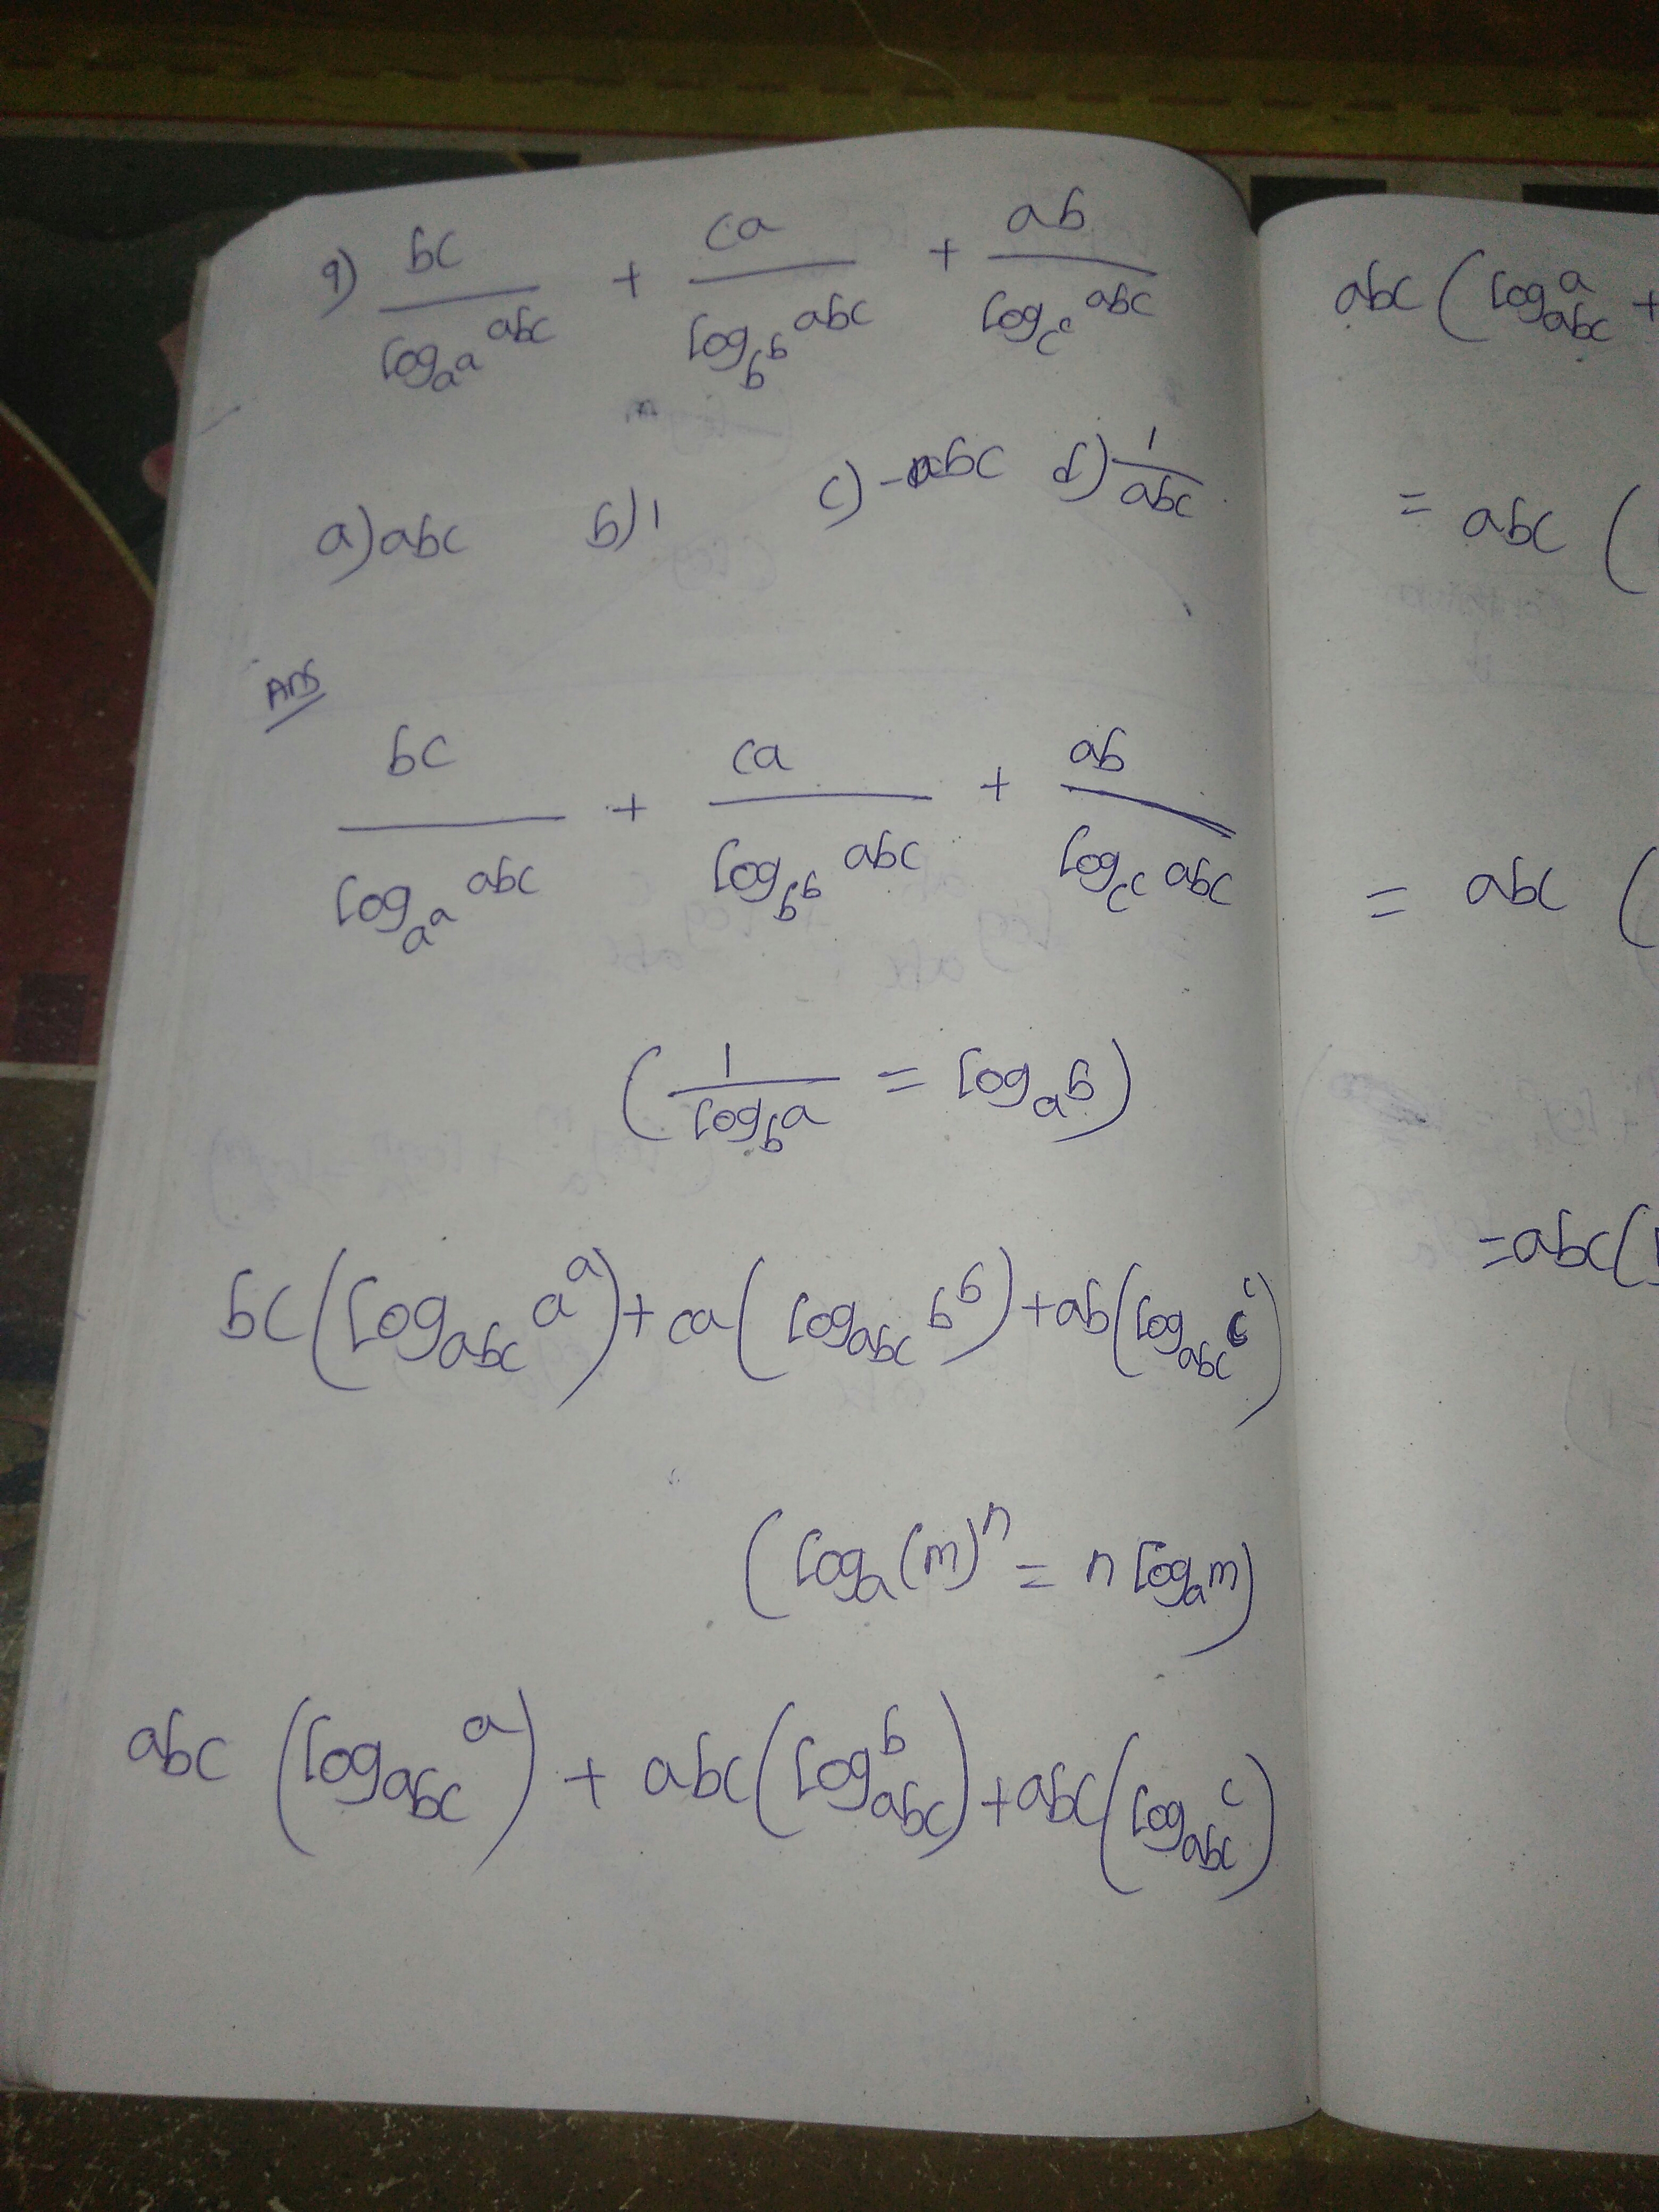 9) bc/log_{a^a} abc + ca/log_{b^b} abc + ab/log_{c^c} abc
a) abc b) 1 c) -abc d) 1/abc
Ans
bc/log_{a^a} abc + ca/log_{b^b} abc + ab/log_{c^c} abc
(1/log_b a = log_a b)
bc(log_{abc} a^a) + ca(log_{abc} b^b) + ab(log_{abc} c^c)
(log_a (m)^n = n log_a m)
abc (log_{abc} a) + abc (log_{abc} b) + abc (log_{abc} c)
abc (log_{abc} a +
= abc (
= abc (
= abc (